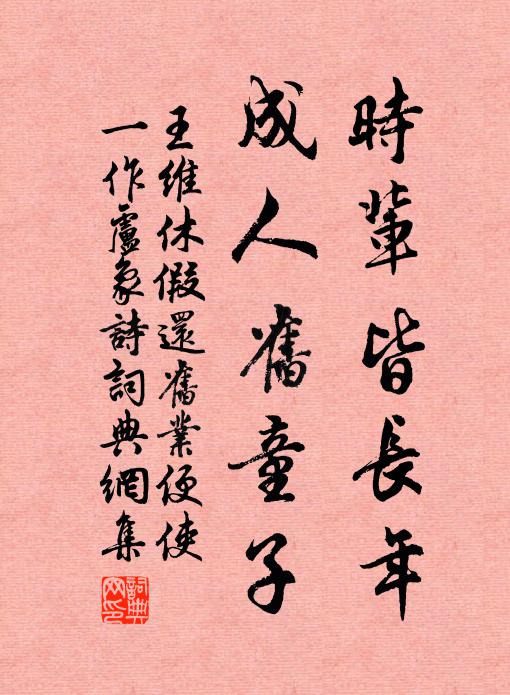 時輩皆長年
成人舊童子
王維休假還舊業便使
一作盧象詩詞典網集